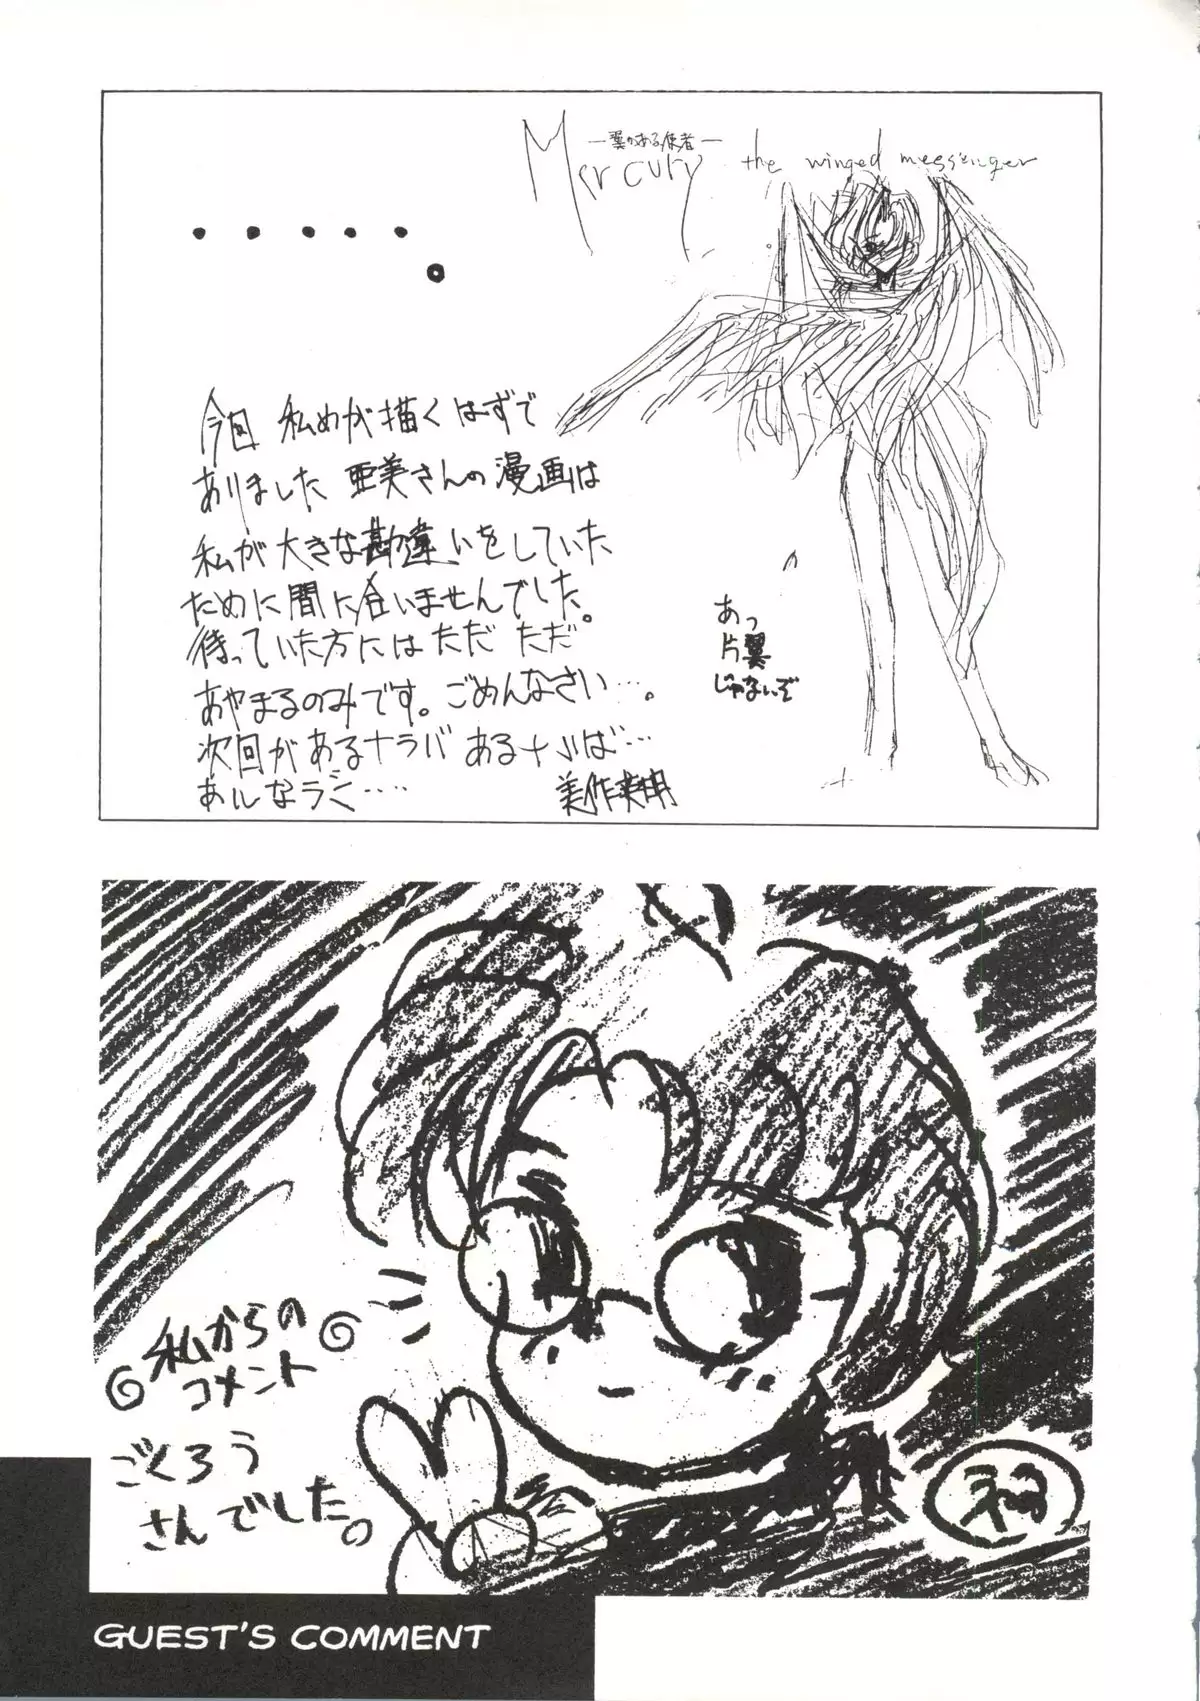 Mercury the winged messenger
―翼がある使者―
・・・・・。
今回 私めが描くはずで
ありました 亜美さんの漫画は
私が大きな勘違いをしていた
ために間に合いませんでした。
待っていた方には ただ ただ
あやまるのみです。ごめんなさい…。
次回があるナラバ あるナらば…
あっ
片翼
じゃないぞ
私からの
コメント
ごくろう
さんでした。
GUEST'S COMMENT